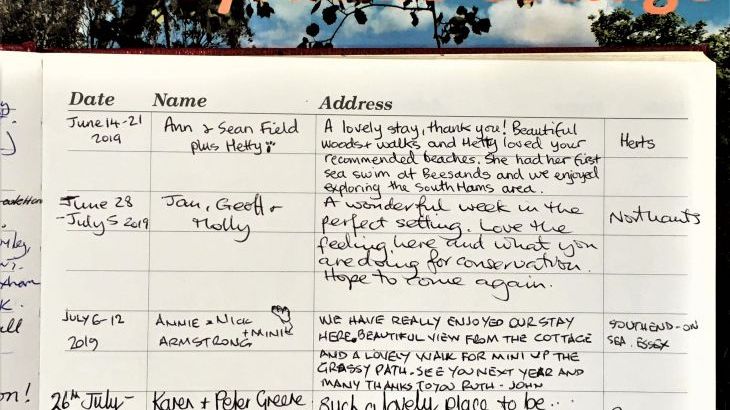 Date Name Address
June 14-21 2019
Ann & Sean Field
plus Hetty
A lovely stay, thank you! Beautiful
woods + walks and Hetty loved your
recommended beaches. She had her first
sea swim at Beesands and we enjoyed
exploring the South Hams area.
Herts
June 28
- July 5 2019
Jan, Geoff +
Molly
A wonderful week in the
perfect setting. Love the
feeling here and what you
are doing for conservation.
Hope to come again.
Northants
JULY 6-12
2019
ANNIE & NICK
+ MINI
ARMSTRONG
WE HAVE REALLY ENJOYED OUR STAY
HERE. BEAUTIFUL VIEW FROM THE COTTAGE
AND A LOVELY WALK FOR MINI UP THE
GRASSY PATH. SEE YOU NEXT YEAR AND
MANY THANKS TO YOU RUTH - JOHN
SOUTHEND-ON
SEA. ESSEX
26th July -
Karen + Peter Greene
Such a lovely place to be...